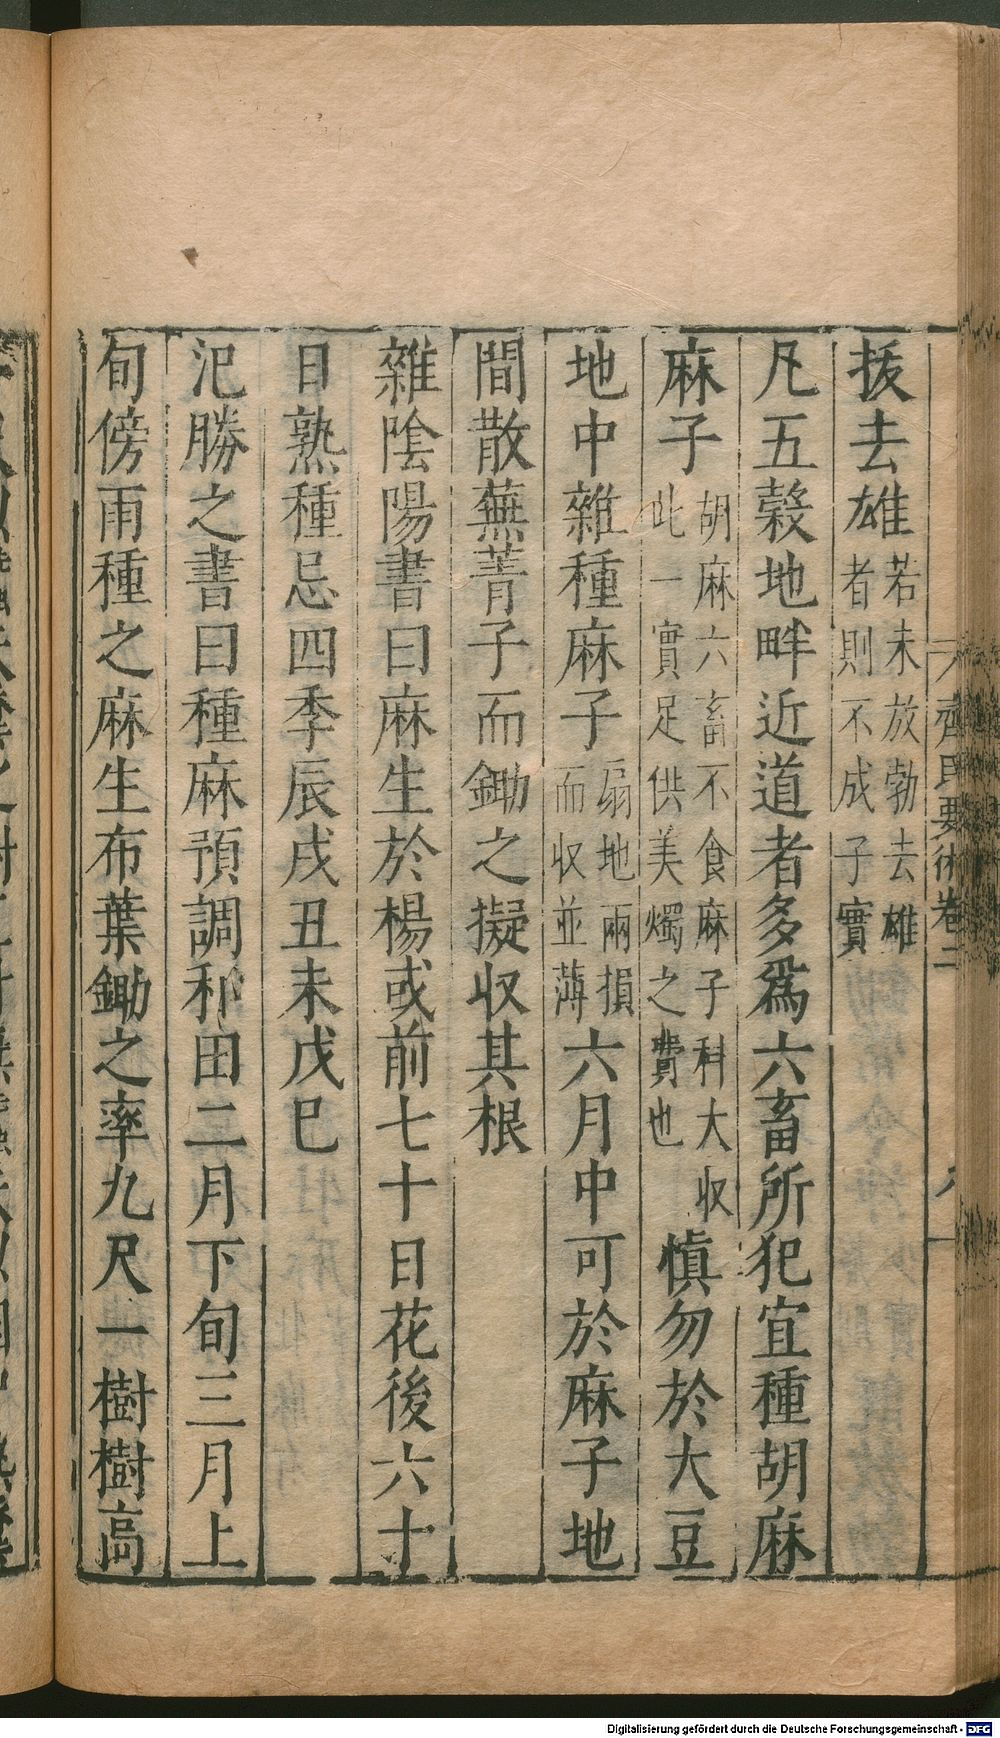 拔去雄若未放勃去雄者則不成子實
凡五穀地畔近道者多爲六畜所犯宜種胡麻
麻子胡麻六畜不食麻子科大收此一實足供美燭之費也慎勿於大豆
地中雜種麻子扇地兩損而收並薄六月中可於麻子地
間散蕪菁子而鋤之擬收其根
雜陰陽書曰麻生於楊或前七十日花後六十
日熟種忌四季辰戌丑未戊巳
汜勝之書曰種麻預調和田二月下旬三月上
旬傍雨種之麻生布葉鋤之率九尺一樹樹高
齊民要術卷二
Digitalisierung gefördert durch die Deutsche Forschungsgemeinschaft - DFG